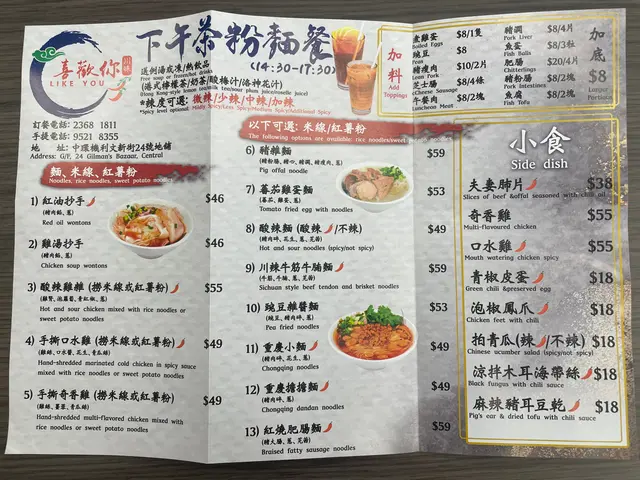 喜歡你
LIKE YOU
下午茶粉麵餐
(14:30-17:30)
送例湯或凍/熱飲品
Free soup or frozen/hot drinks
(港式檸檬茶/奶茶/酸梅汁/洛神花汁)
(Hong Kong-style lemon tea/milk tea/sour plum juice/roselle juice)
*辣度可選: 微辣/少辣/中辣/加辣
*Spicy level optional: Mildly Spicy/Less Spicy/Medium Spicy/Additional Spicy
訂餐電話: 2368 1811
手提電話: 9521 8355
地 址: 中環機利文新街24號地舖
Address: G/F, 24 Gilman's Bazaar, Central
麵、米線、紅薯粉
Noodles, rice noodles, sweet potato noodles
1) 紅油抄手 $46
(豬肉餡、蔥)
Red oil wontons
2) 雞湯抄手 $46
(豬肉餡、蔥)
Chicken soup wontons
3) 酸辣雞雜 (撈米線或紅薯粉) $55
Hot and sour chicken mixed with rice noodles or
sweet potato noodles
4) 手撕口水雞 (撈米線或紅薯粉) $49
Hand-shredded marinated cold chicken in spicy sauce
mixed with rice noodles or sweet potato noodles
5) 手撕奇香雞 (撈米線或紅薯粉) $49
Hand-shredded multi-flavored chicken mixed with
rice noodles or sweet potato noodles
以下可選: 米線/紅薯粉
The following options are available: rice noodles/sweet
6) 豬雜麵 $59
Pig offal noodle
7) 番茄雞蛋麵 $53
(番茄、雞蛋、蔥)
Tomato fried egg with noodles
8) 酸辣麵 (酸辣/不辣) $49
Hot and sour noodles (spicy/not spicy)
9) 川辣牛筋牛腩麵 $59
(牛筋、牛腩、蔥、芫荽)
Sichuan style beef tendon and brisket noodles
10) 豌豆雜醬麵 $53
(豌豆、豬肉碎、蔥)
Pea fried noodles
11) 重慶小麵 $49
Chongqing noodles
12) 重慶擔擔麵 $49
Chongqing dandan noodles
13) 紅燒肥腸麵 $59
(豬大腸、蔥、芫荽)
Braised fatty sausage noodles
加料
Add
Toppings
煮雞蛋 $8/1隻
Boiled Eggs
豌豆 $8
Pea
豬瘦肉 $10/2片
Lean Pork
芝士腸 $8/4條
Cheese Sausage
午餐肉 $8/2塊
Luncheon Meat
豬潤 $8/4片
Pork Liver
魚蛋 $8/3粒
Fish Balls
肥腸 $20/4片
Chitterlings
豬粉腸 $8/2塊
Pork Intestines
魚腐 $8/2塊
Fish Tofu
加底
$8
Larger
Portion
小食
Side dish
夫妻肺片 $38
Slices of beef &offal seasoned with chili oil
奇香雞 $55
Multi-flavoured chicken
口水雞 $55
Mouth watering chicken spicy
青椒皮蛋 $18
Green chili &preserved egg
泡椒鳳爪 $18
Chicken feet with chili
拍青瓜(辣/不辣) $18
Chinese ucumber salad (spicy/not spicy)
涼拌木耳海帶絲 $18
Black fungus with chili sauce
麻辣豬耳豆乾 $18
Pig's ear & dried tofu with chili sauce